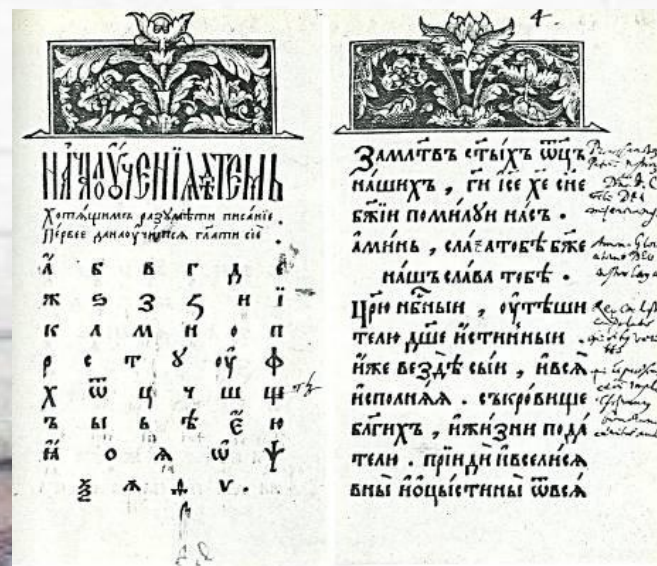 НАЧАЛО ОУЧЕНІЯ ДѢТЕМЪ
Хотѧщимсѧ разꙋмѣти писаніе .
Первее данаоучитсѧ глати сіе
а҆ б в г д е
ж ѕ З ꙁ и ї
к л м н о п
р с т ꙋ оу ф
х ѿ ц ч ш щ
ъ ы ь ѣ е ю
ꙗ о ѧ ѡ ѱ
ѯ ѵ .
4.
Замл҃твъ ст҃ыхъ ѿц҃ъ
на́шихъ , гⷭ҇и і҆с҃е хⷭ҇е сн҃е
бж҃їи поми́луи на́съ .
А҆ми́нь , сла́ватобѣ бж҃е
на́шъ сла́ва тобѣ .
Цр҃ю нбⷭ҇ныи , оу҆тѣши
телю дш҃е и҆́стинныи .
и҆́же вездѣ̀ сыи , и҆всѧ̀
и҆сполнѧ́ѧ . съкро́вище
бл҃ги́хъ , и҆жи́зни пода́
телю . прїидѝ и҆всели́сѧ
вны̀ и҆оцы́стины̀ ѿвсѧ̀